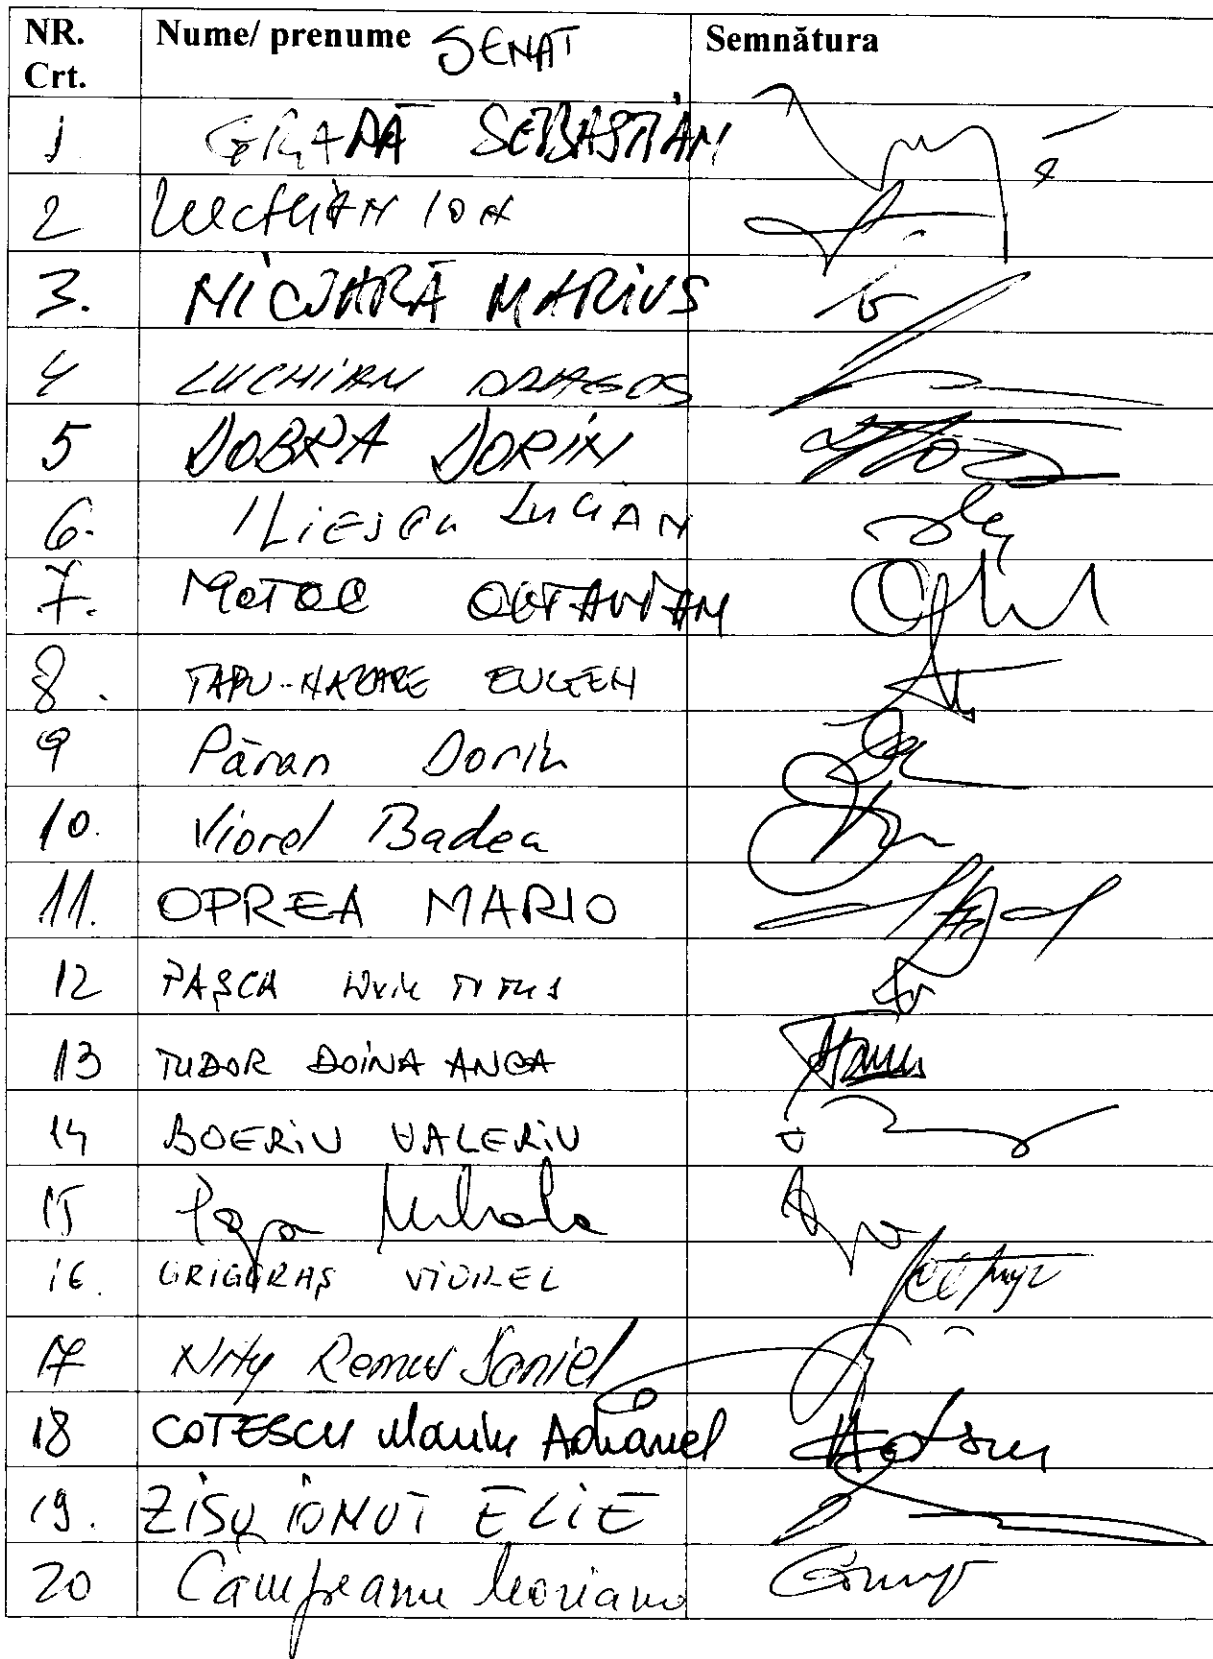 NR. Crt. Nume/ prenume SENAT Semnătura
1 GRAPĂ SEBASTIAN
2 LUCHIAN ION
3. NICOARĂ MARIUS
4 LUCHIAN DRAGOS
5 DOBRA DORIN
6. ILIESCU LUCIAN
7. MOTOC OCTAVIAN
8. TAPU-NAZARE EUGEN
9 Păran Dorin
10. Viorel Badea
11. OPREA MARIO
12 PAŞCA LIVIU TITUS
13 TUDOR DOINA ANCA
14 BOERIU VALERIU
15 Popa Mihaela
16. GRIGORAŞ VIOREL
17 Niţu Remus Daniel
18 COTESCU Marin Adrianel
19. ZISU IONUT ELIE
20 Câmpeanu Mariana